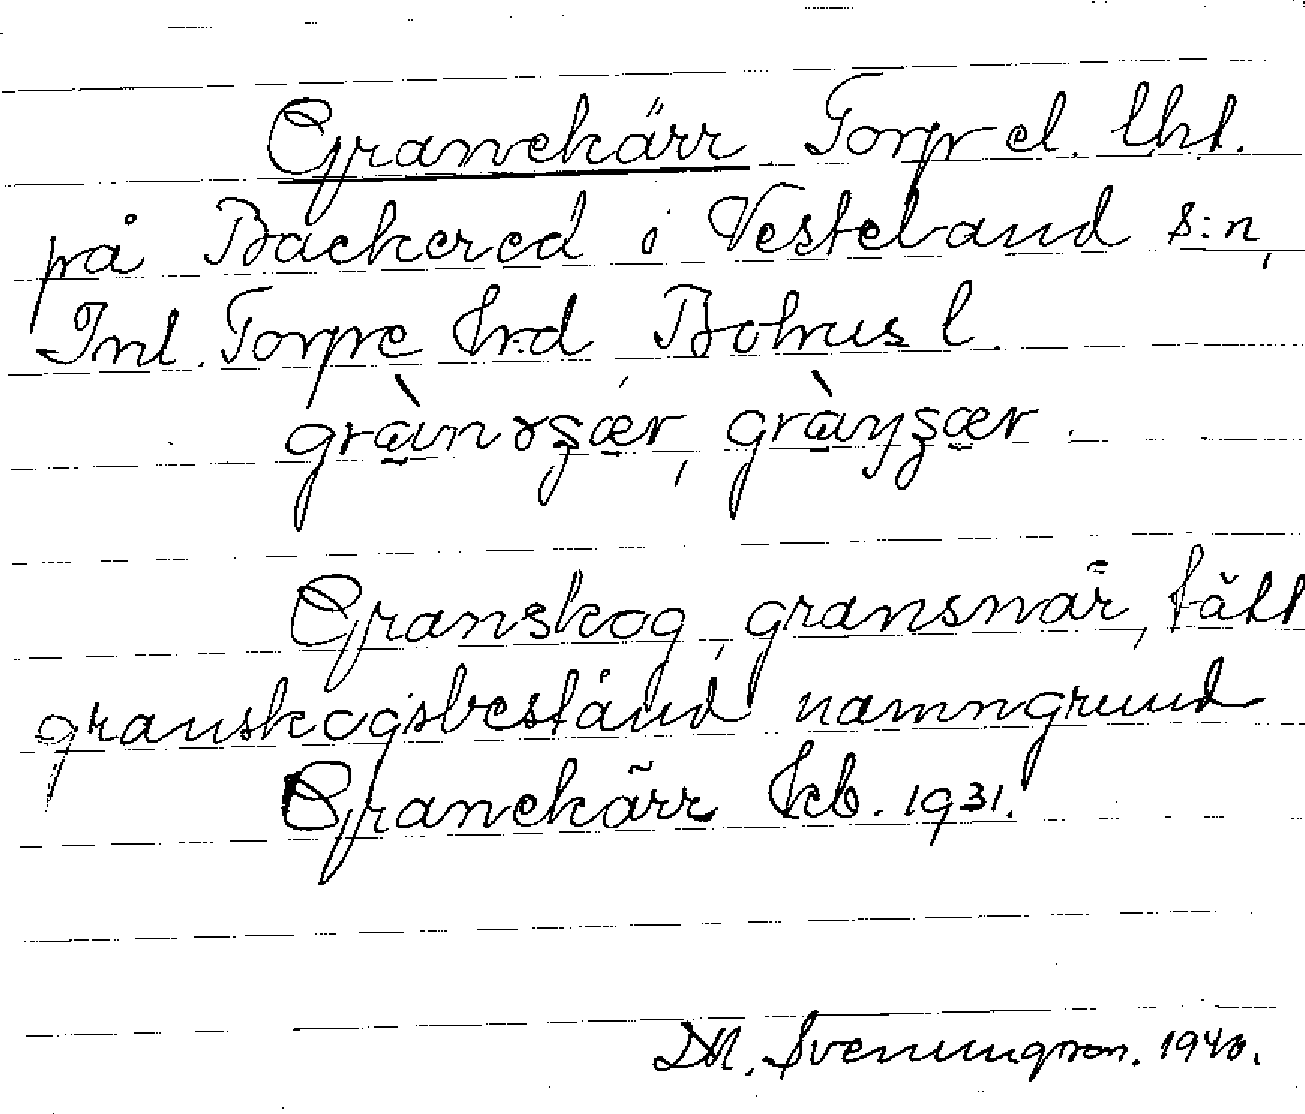 Granekärr Torp el. lht.
på Backered i Vesterland s:n,
Inl. Torpe hrd Bohus l.
Granskog, gransnår, tätt
granskogsbestånd namngrund
Granekärr kb. 1931.
D.A. Svenungsson. 1940.